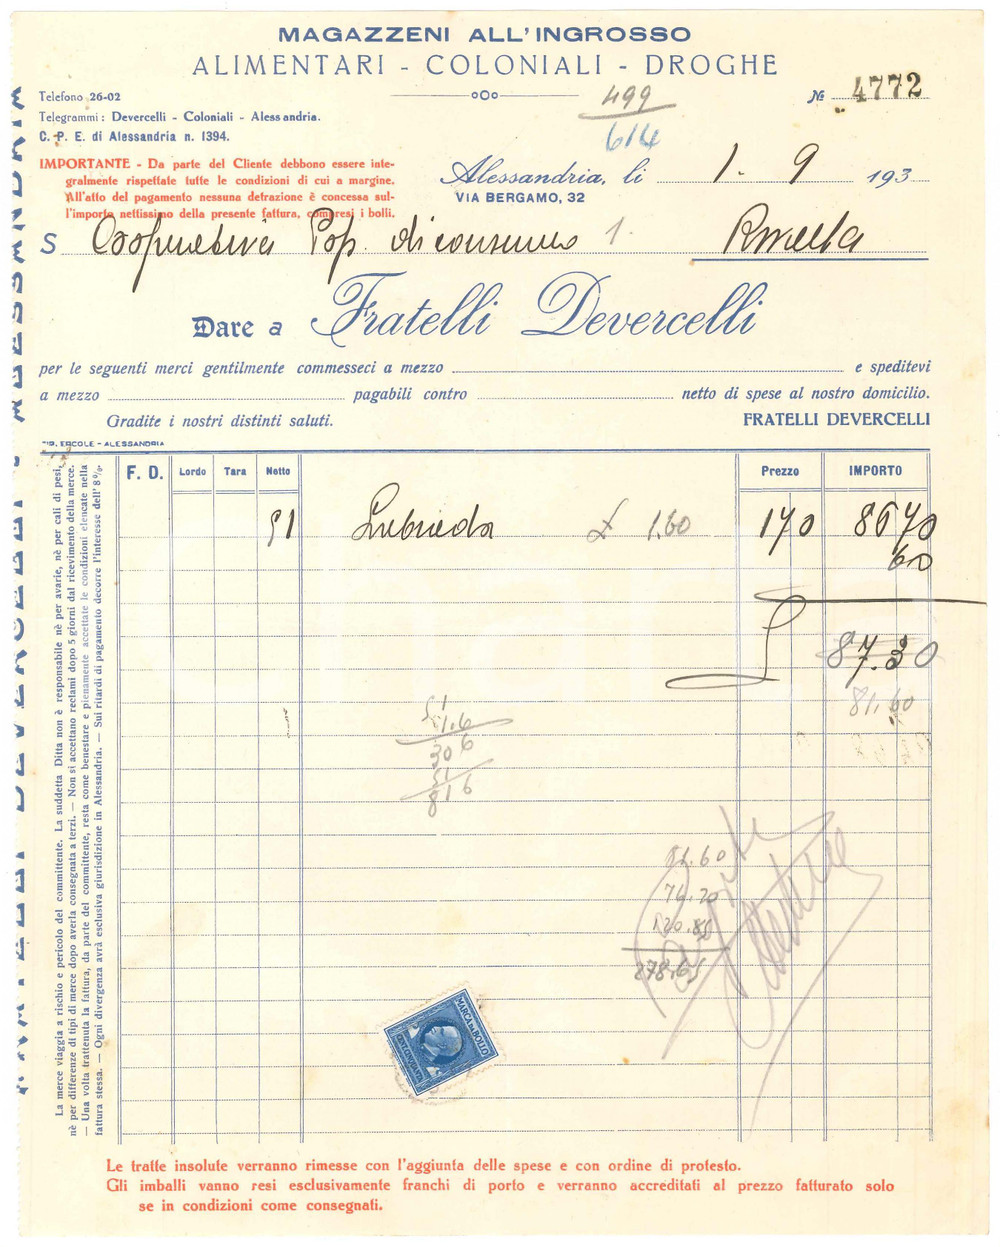 MAGAZZENI ALL'INGROSSO
ALIMENTARI - COLONIALI - DROGHE
Telefono 26-02
Telegrammi: Devercelli - Coloniali - Alessandria.
C. P. E. di Alessandria n. 1394.
499
614
№ 4772
IMPORTANTE - Da parte del Cliente debbono essere inte-
gralmente rispettate tutte le condizioni di cui a margine.
All'atto del pagamento nessuna detrazione è concessa sul-
l'importo nettissimo della presente fattura, compresi i bolli.
Alessandria, li 1. 9 193
VIA BERGAMO, 32
S Cooperativa Pop. di consumo 1.
Dare a Fratelli Devercelli
per le seguenti merci gentilmente commesseci a mezzo e speditevi
a mezzo pagabili contro netto di spese al nostro domicilio.
Gradite i nostri distinti saluti. FRATELLI DEVERCELLI
TIP. ERCOLE - ALESSANDRIA
F. D. Lordo Tara Netto Prezzo IMPORTO
51 £ 1.60 170 86 70
60
87.30
81,60
51
1.6
306
51
816
81.60
74.20
120.85
278.65
MARCA DA BOLLO
La merce viaggia a rischio e pericolo del committente. La suddetta Ditta non è responsabile nè per avarie, nè per cali di pesi,
nè per differenze di tipi di merce dopo averla consegnata a terzi. — Non si accettano reclami dopo 5 giorni dal ricevimento della merce.
— Una volta trattenuta la fattura, da parte del committente, resta come benestare e pienamente accettate le condizioni elencate nella
fattura stessa. — Ogni divergenza avrà esclusiva giurisdizione in Alessandria. — Sui ritardi di pagamento decorre l'interesse dell'8%.
Le tratte insolute verranno rimesse con l'aggiunta delle spese e con ordine di protesto.
Gli imballi vanno resi esclusivamente franchi di porto e verranno accreditati al prezzo fatturato solo
se in condizioni come consegnati.